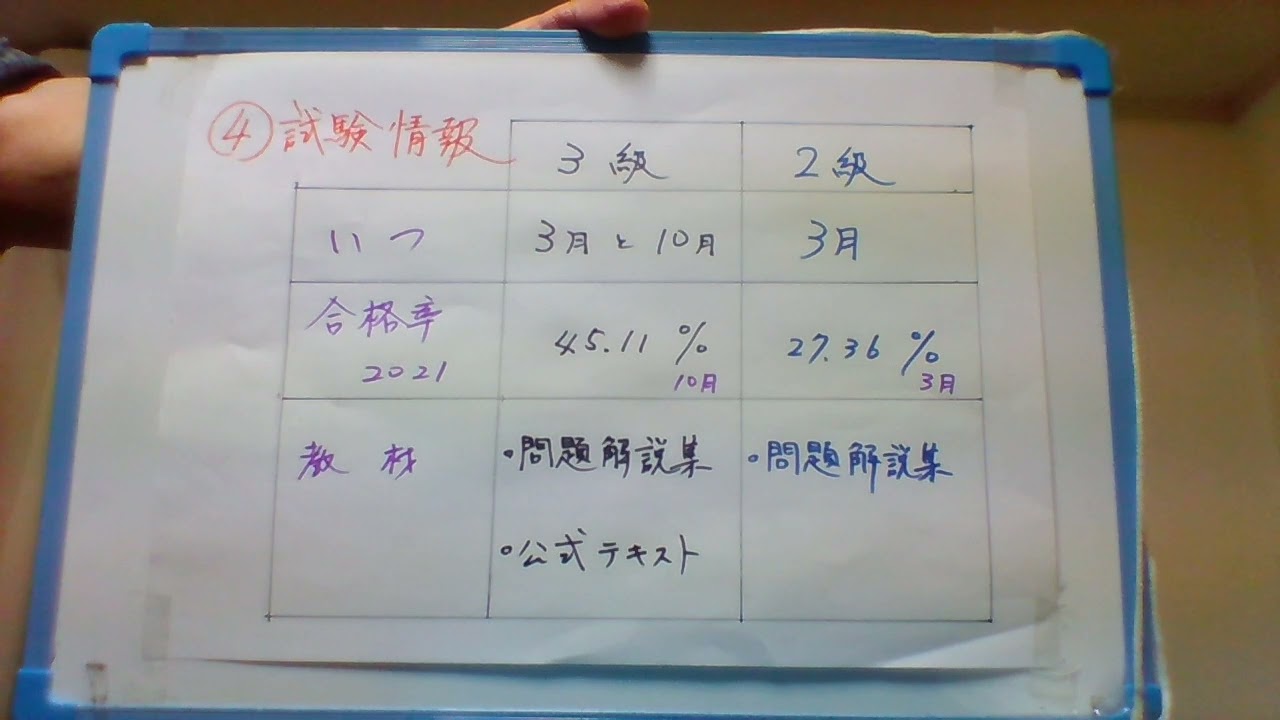 ④試験情報
3級 2級
いつ 3月と10月 3月
合格率 45.11% 27.36%
2021 10月 3月
教材 •問題解説集 •問題解説集
•公式テキスト